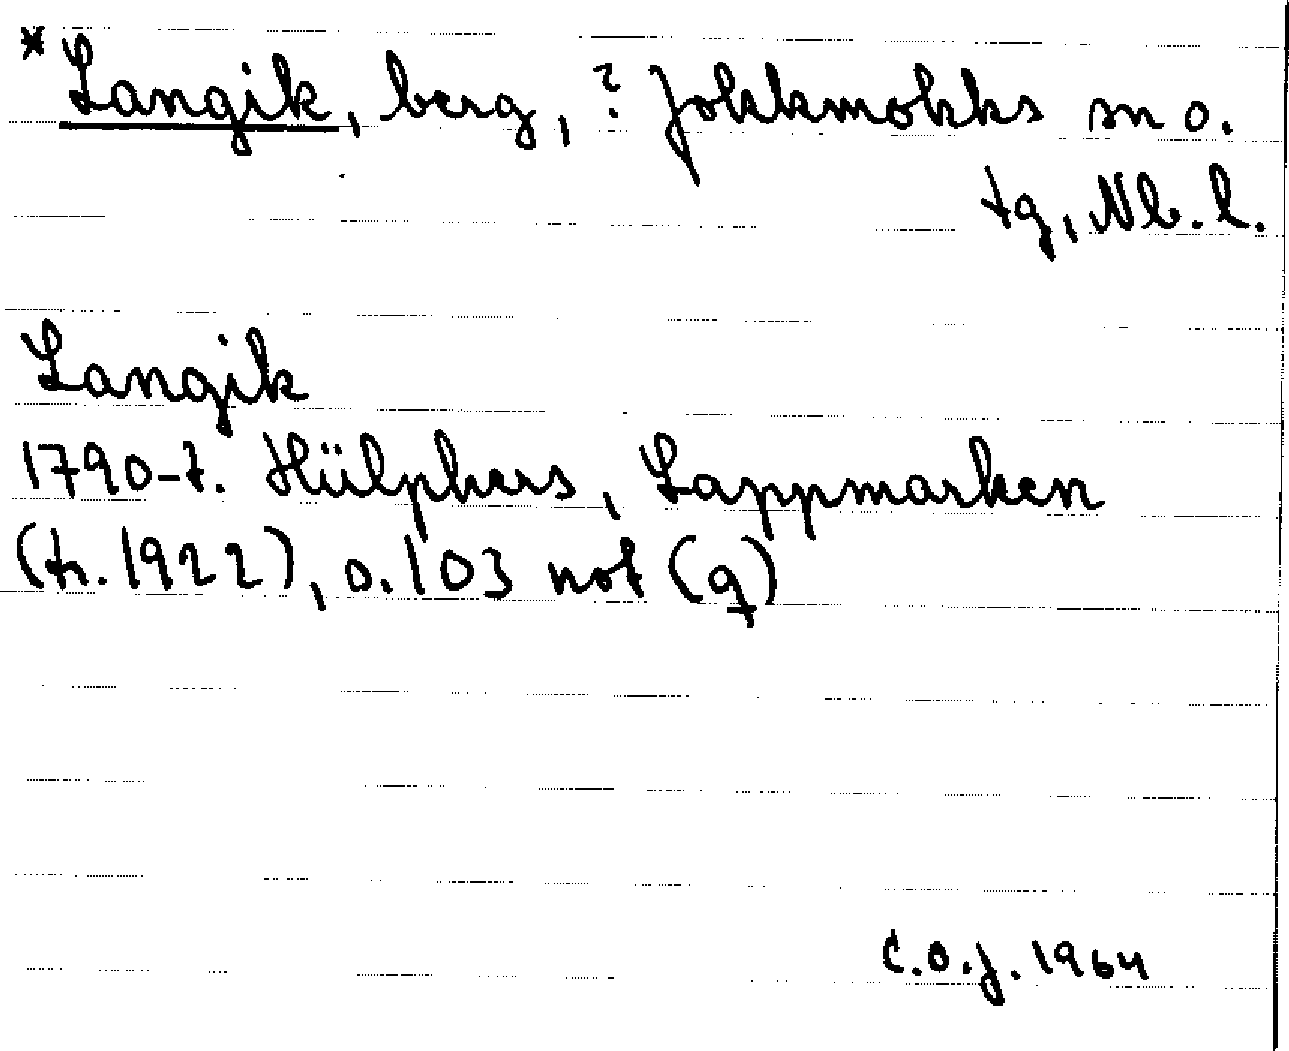 * Langik, berg, ? Jokkmokks sn o.
tg, Nb. l.
Langik
1790-t. Hülphers, Lappmarken
(tr. 1922), s. 103 not (q)
C.O.J. 1964